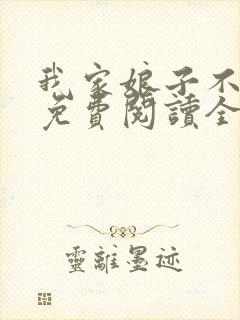 我家娘子不
免費閱讀全
靈離墨迹